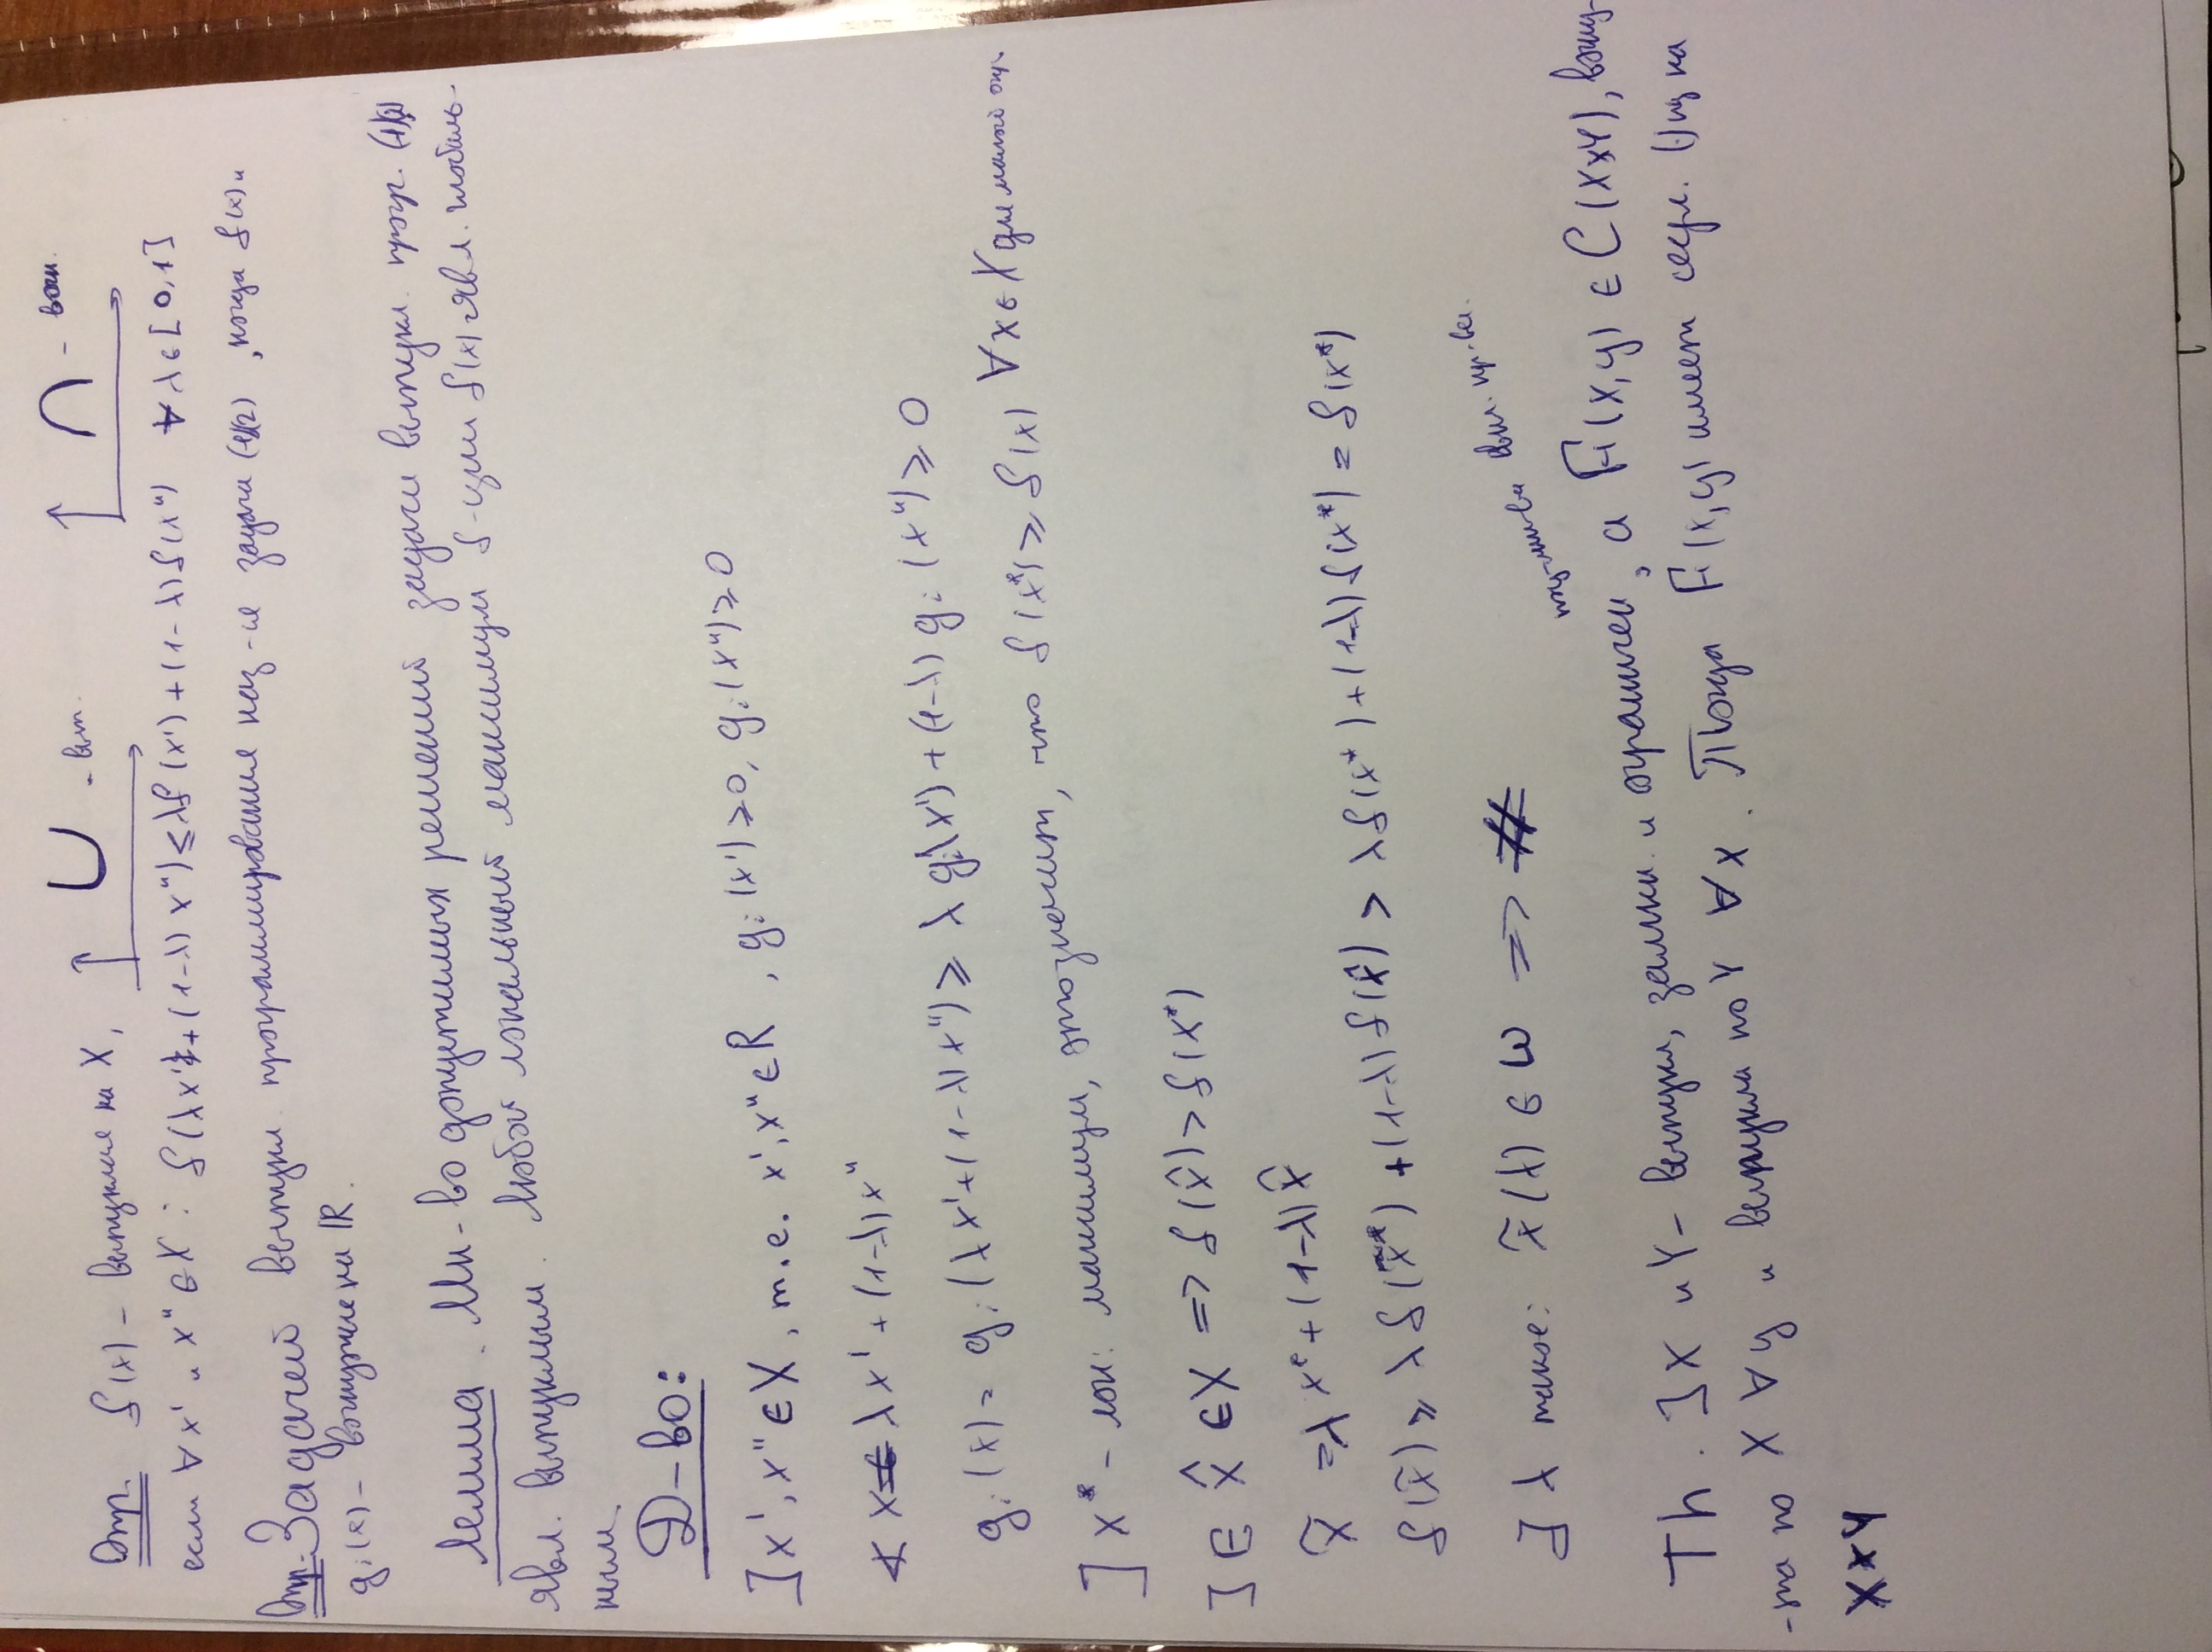 Опр. f(x) – выпуклая на X, - вып. - вогн.
если ∀ x' и x'' ∈ X : f(λx' + (1-λ) x'') ≤ λf(x') + (1-λ)f(x'') ∀ λ ∈ [0,1]
Опр. Задачей выпукл. программирования наз-ся задача (1)(2), когда f(x) и
g_i(x) – вогнутые на R.
Лемма. Мн-во допустимых решений задачи выпукл. прогр. (1)(2)
явл. выпуклым. Любой локальный максимум f-ции f(x) явл. глобаль-
ным.
Д-во:
] x', x'' ∈ X, т.е. x', x'' ∈ R, g_i(x') ≥ 0, g_i(x'') ≥ 0
∢ x = λx' + (1-λ)x''
g_i(x) = g_i(λx' + (1-λ)x'') ≥ λ g_i(x') + (1-λ) g_i(x'') ≥ 0
] x* – лок. максимум, это значит, что f(x*) ≥ f(x) ∀ x ∈ X для малой окр.
] ∃ x̂ ∈ X => f(x̂) > f(x*)
x̃ = λx* + (1-λ)x̂
f(x̃) ≥ λ f(x*) + (1-λ) f(x̂) > λf(x*) + (1-λ)f(x*) = f(x*)
] λ такое: x̃(λ) ∈ ω => #
подмн-ва евкл. пр-ва.
Th. ] X и Y – выпукл, замкн. и ограничен, а F(x,y) ∈ C(X×Y), вогну-
-та по X ∀ y и выпукла по Y ∀ x. Тогда F(x,y) имеет седл. (·) на
X×Y